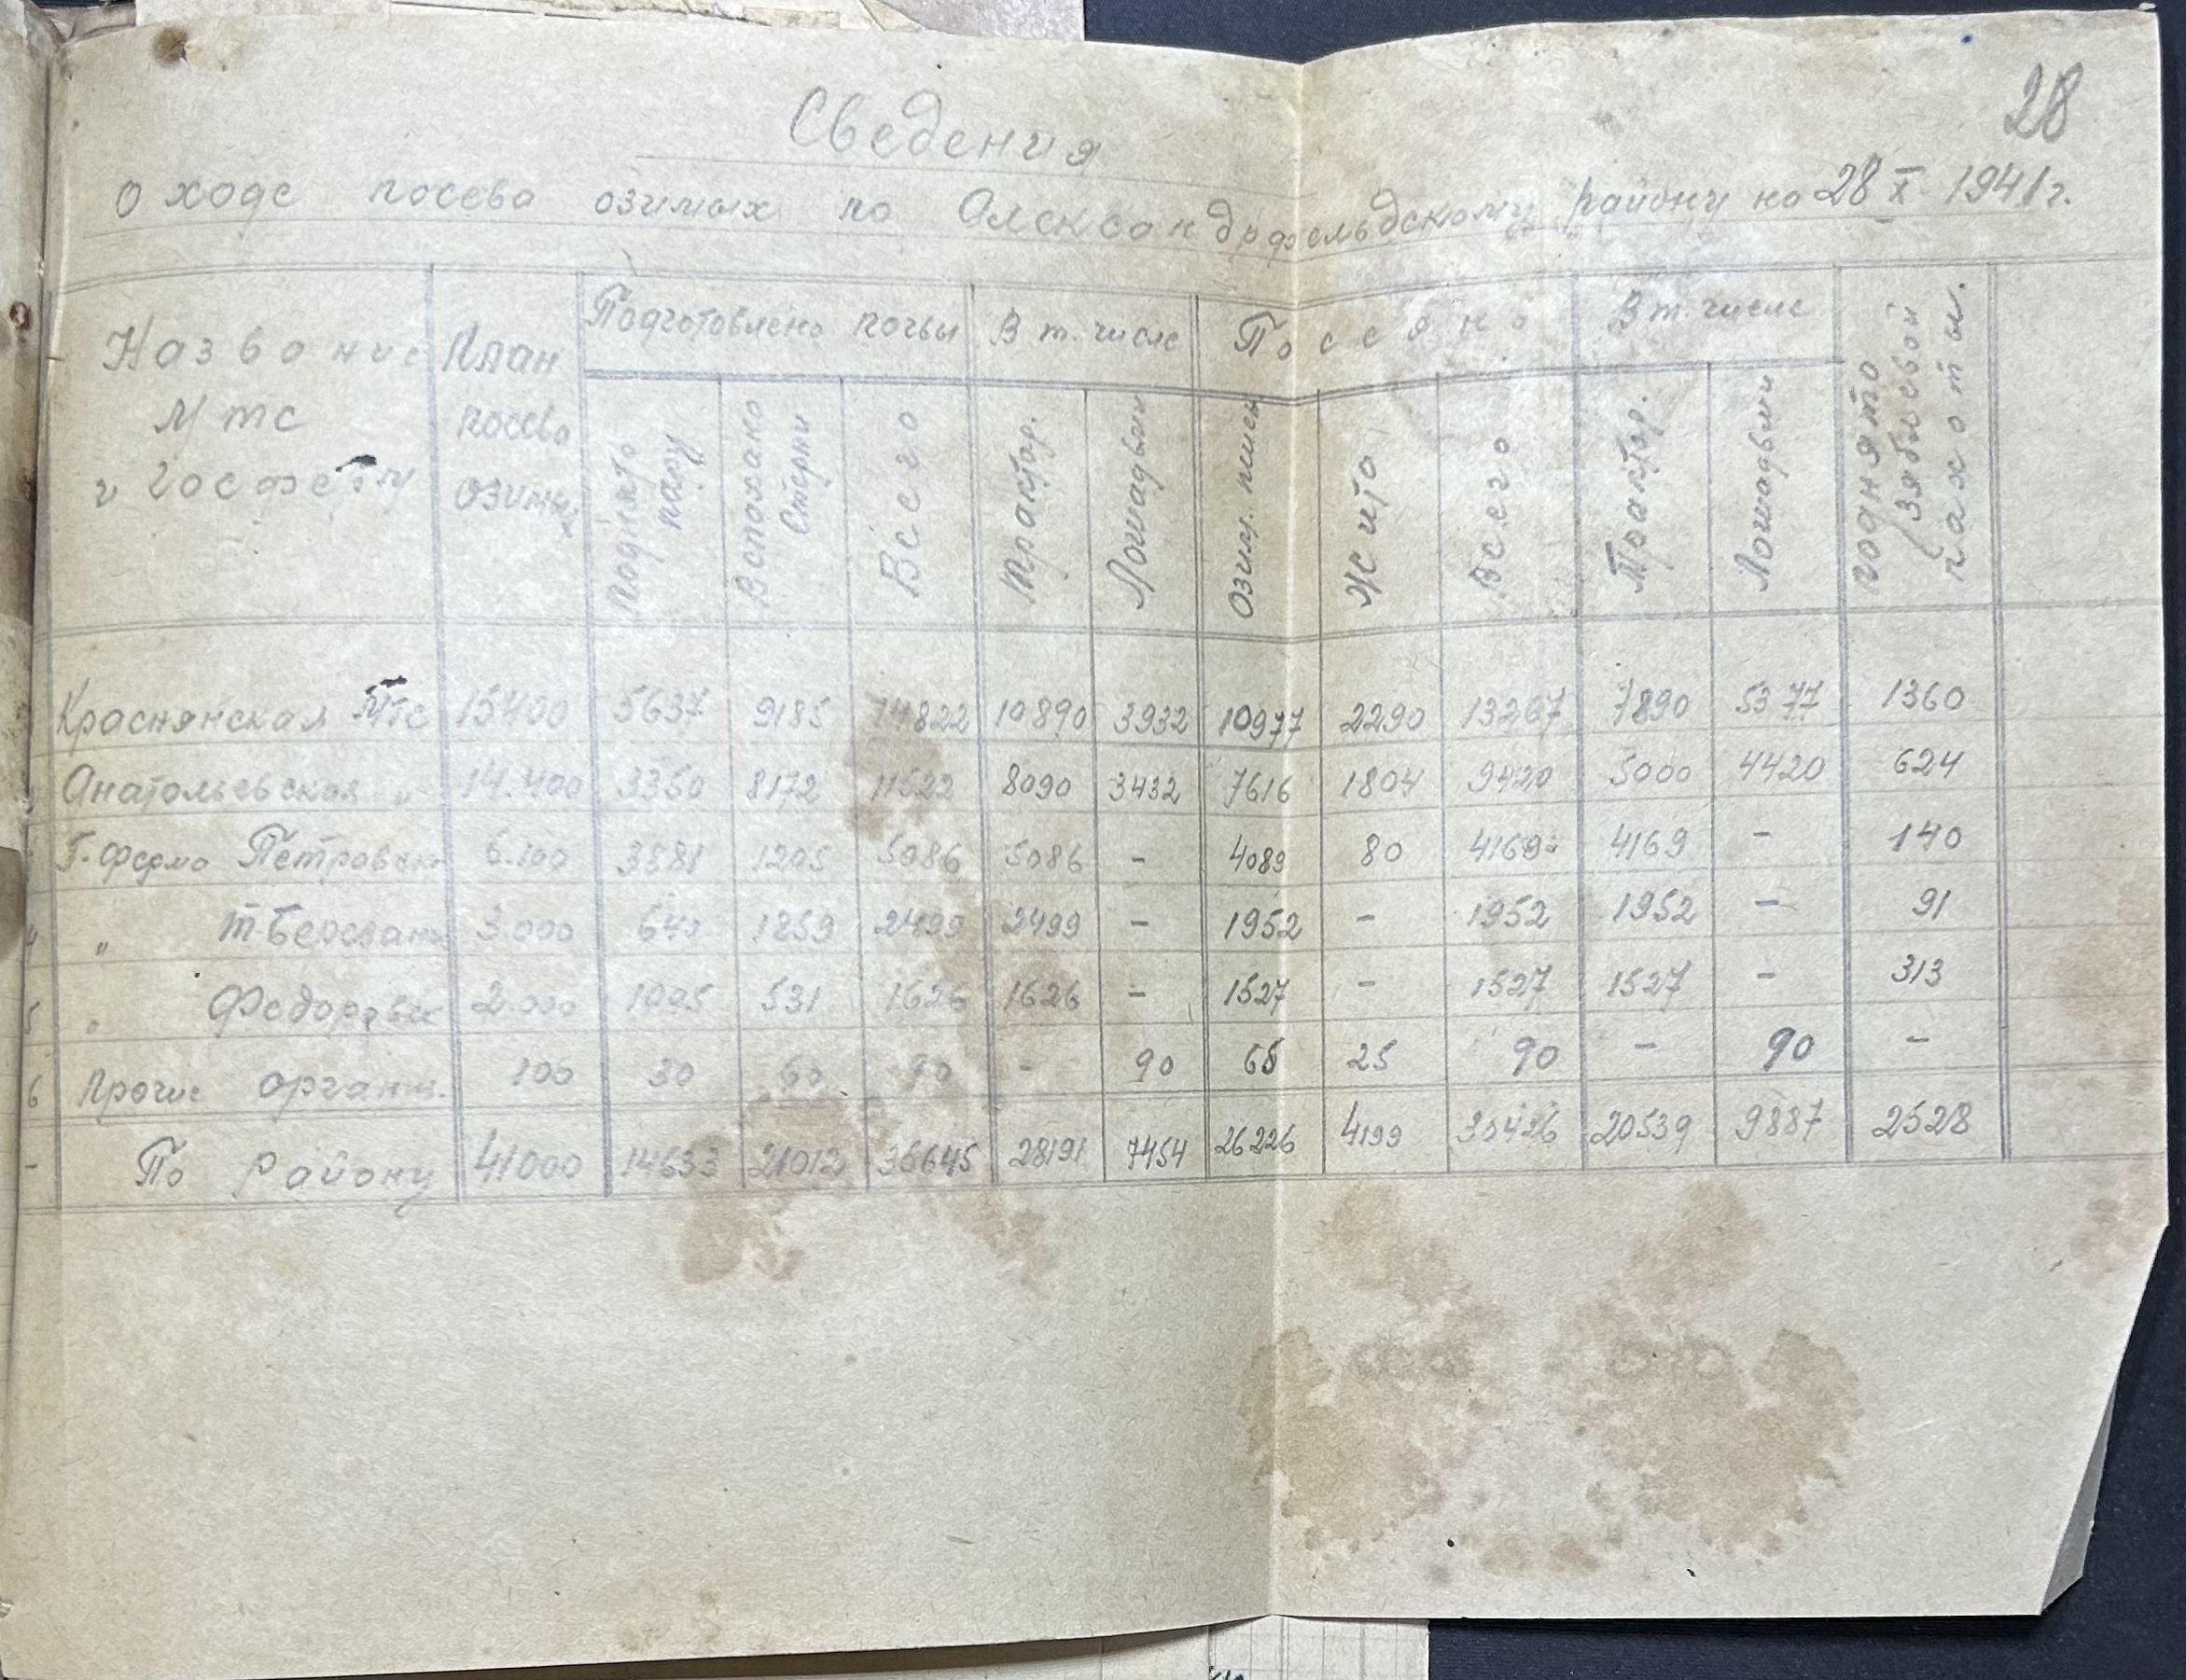 28
Сведения
о ходе посева озимых по Александрфельдскому району на 28 X 1941 г.
Название МТС и Госферм | План посева озимых | Подготовлено почвы | В т. числе | Посеяно | В т. числе | Поднято зяблевой пахоты.
Поднято пару | Вспахано стерни | Всего | Трактор. | Лошадьми | Озим. пшен | Жита | Всего | Трактор. | Лошадьми
Краснянская МТС | 15400 | 5637 | 9185 | 14822 | 10890 | 3932 | 10977 | 2290 | 13267 | 7890 | 5377 | 1360
Анатольевская " | 14.400 | 3350 | 8172 | 11522 | 8090 | 3432 | 7616 | 1804 | 9420 | 5000 | 4420 | 624
Г. ферма Петровск | 6.100 | 3881 | 1205 | 5086 | 5086 | - | 4089 | 80 | 4169 | 4169 | - | 140
4 " Т-Березань | 3.000 | 640 | 1859 | 2499 | 2499 | - | 1952 | - | 1952 | 1952 | - | 91
5 " Федоровск | 2.000 | 1095 | 531 | 1626 | 1626 | - | 1527 | - | 1527 | 1527 | - | 313
6 Прочие органи. | 100 | 30 | 60 | 90 | - | 90 | 65 | 25 | 90 | - | 90 | -
- По району | 41000 | 14633 | 21012 | 35645 | 28191 | 7454 | 26226 | 4199 | 30426 | 20539 | 9887 | 2528